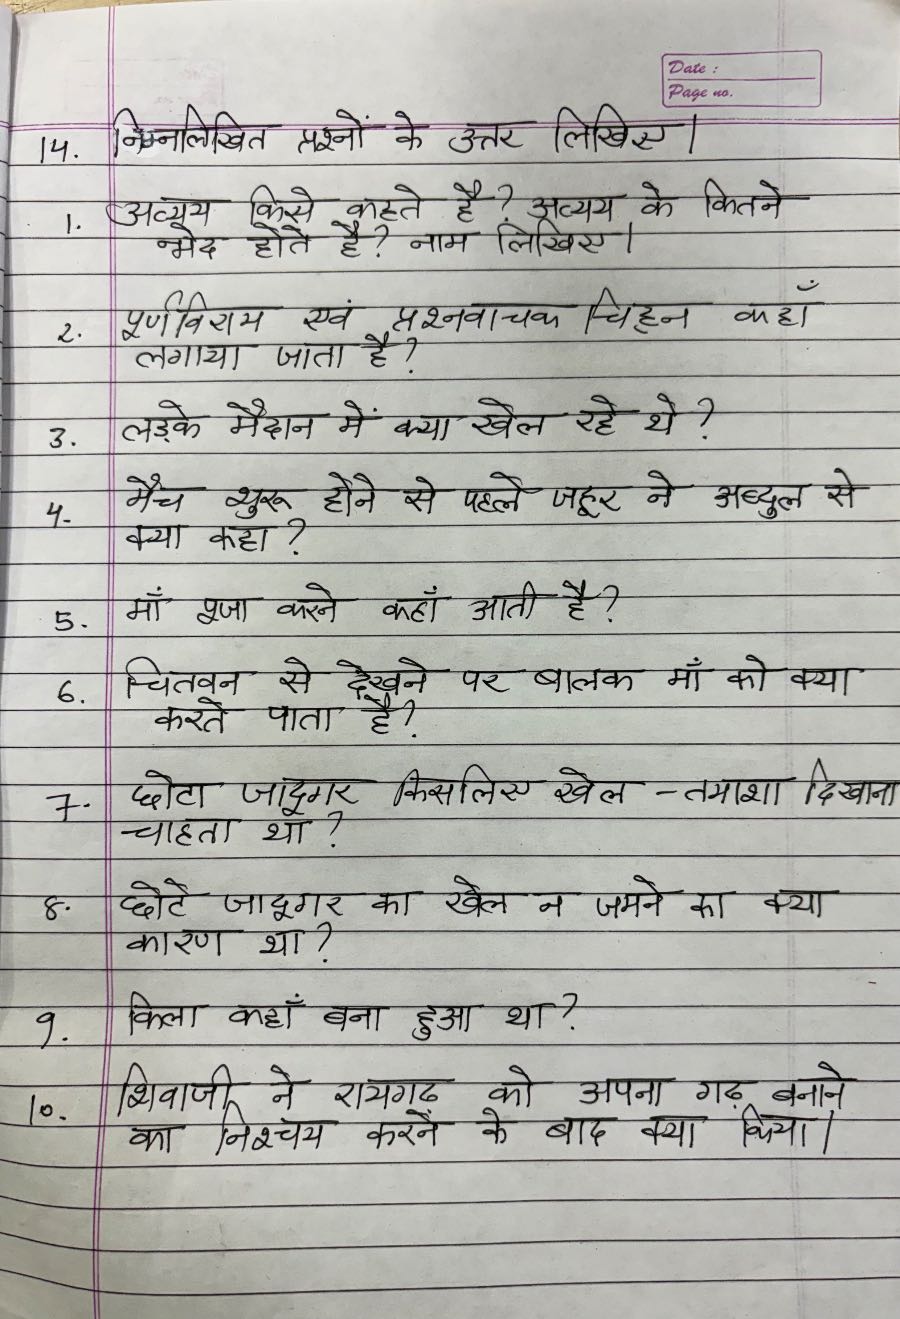 Date :
Page no.
14. निम्नलिखित प्रश्नों के उत्तर लिखिए।
1. अव्यय किसे कहते है? अव्यय के कितने
भेद होते है? नाम लिखिए।
2. पूर्णविराम एवं प्रश्नवाचक चिह्न कहाँ
लगाया जाता है?
3. लड़के मैदान में क्या खेल रहे थे?
4. मैच शुरू होने से पहले जहूर ने अब्दुल से
क्या कहा?
5. माँ पूजा करने कहाँ आती है?
6. चितवन से देखने पर बालक माँ को क्या
करते पाता है?
7. छोटा जादूगर किसलिए खेल - तमाशा दिखाना
चाहता था?
8. छोटे जादूगर का खेल न जमने का क्या
कारण था?
9. किला कहाँ बना हुआ था?
10. शिवाजी ने रायगढ़ को अपना गढ़ बनाने
का निश्चय करने के बाद क्या किया।